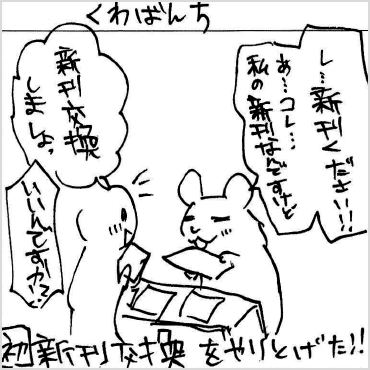 くわばんち
し…新刊ください!!
あ…コレ…
私の新刊なんですけど
新刊交換
しましょっ
いいんですかっ!?
初新刊交換をやりとげた!!